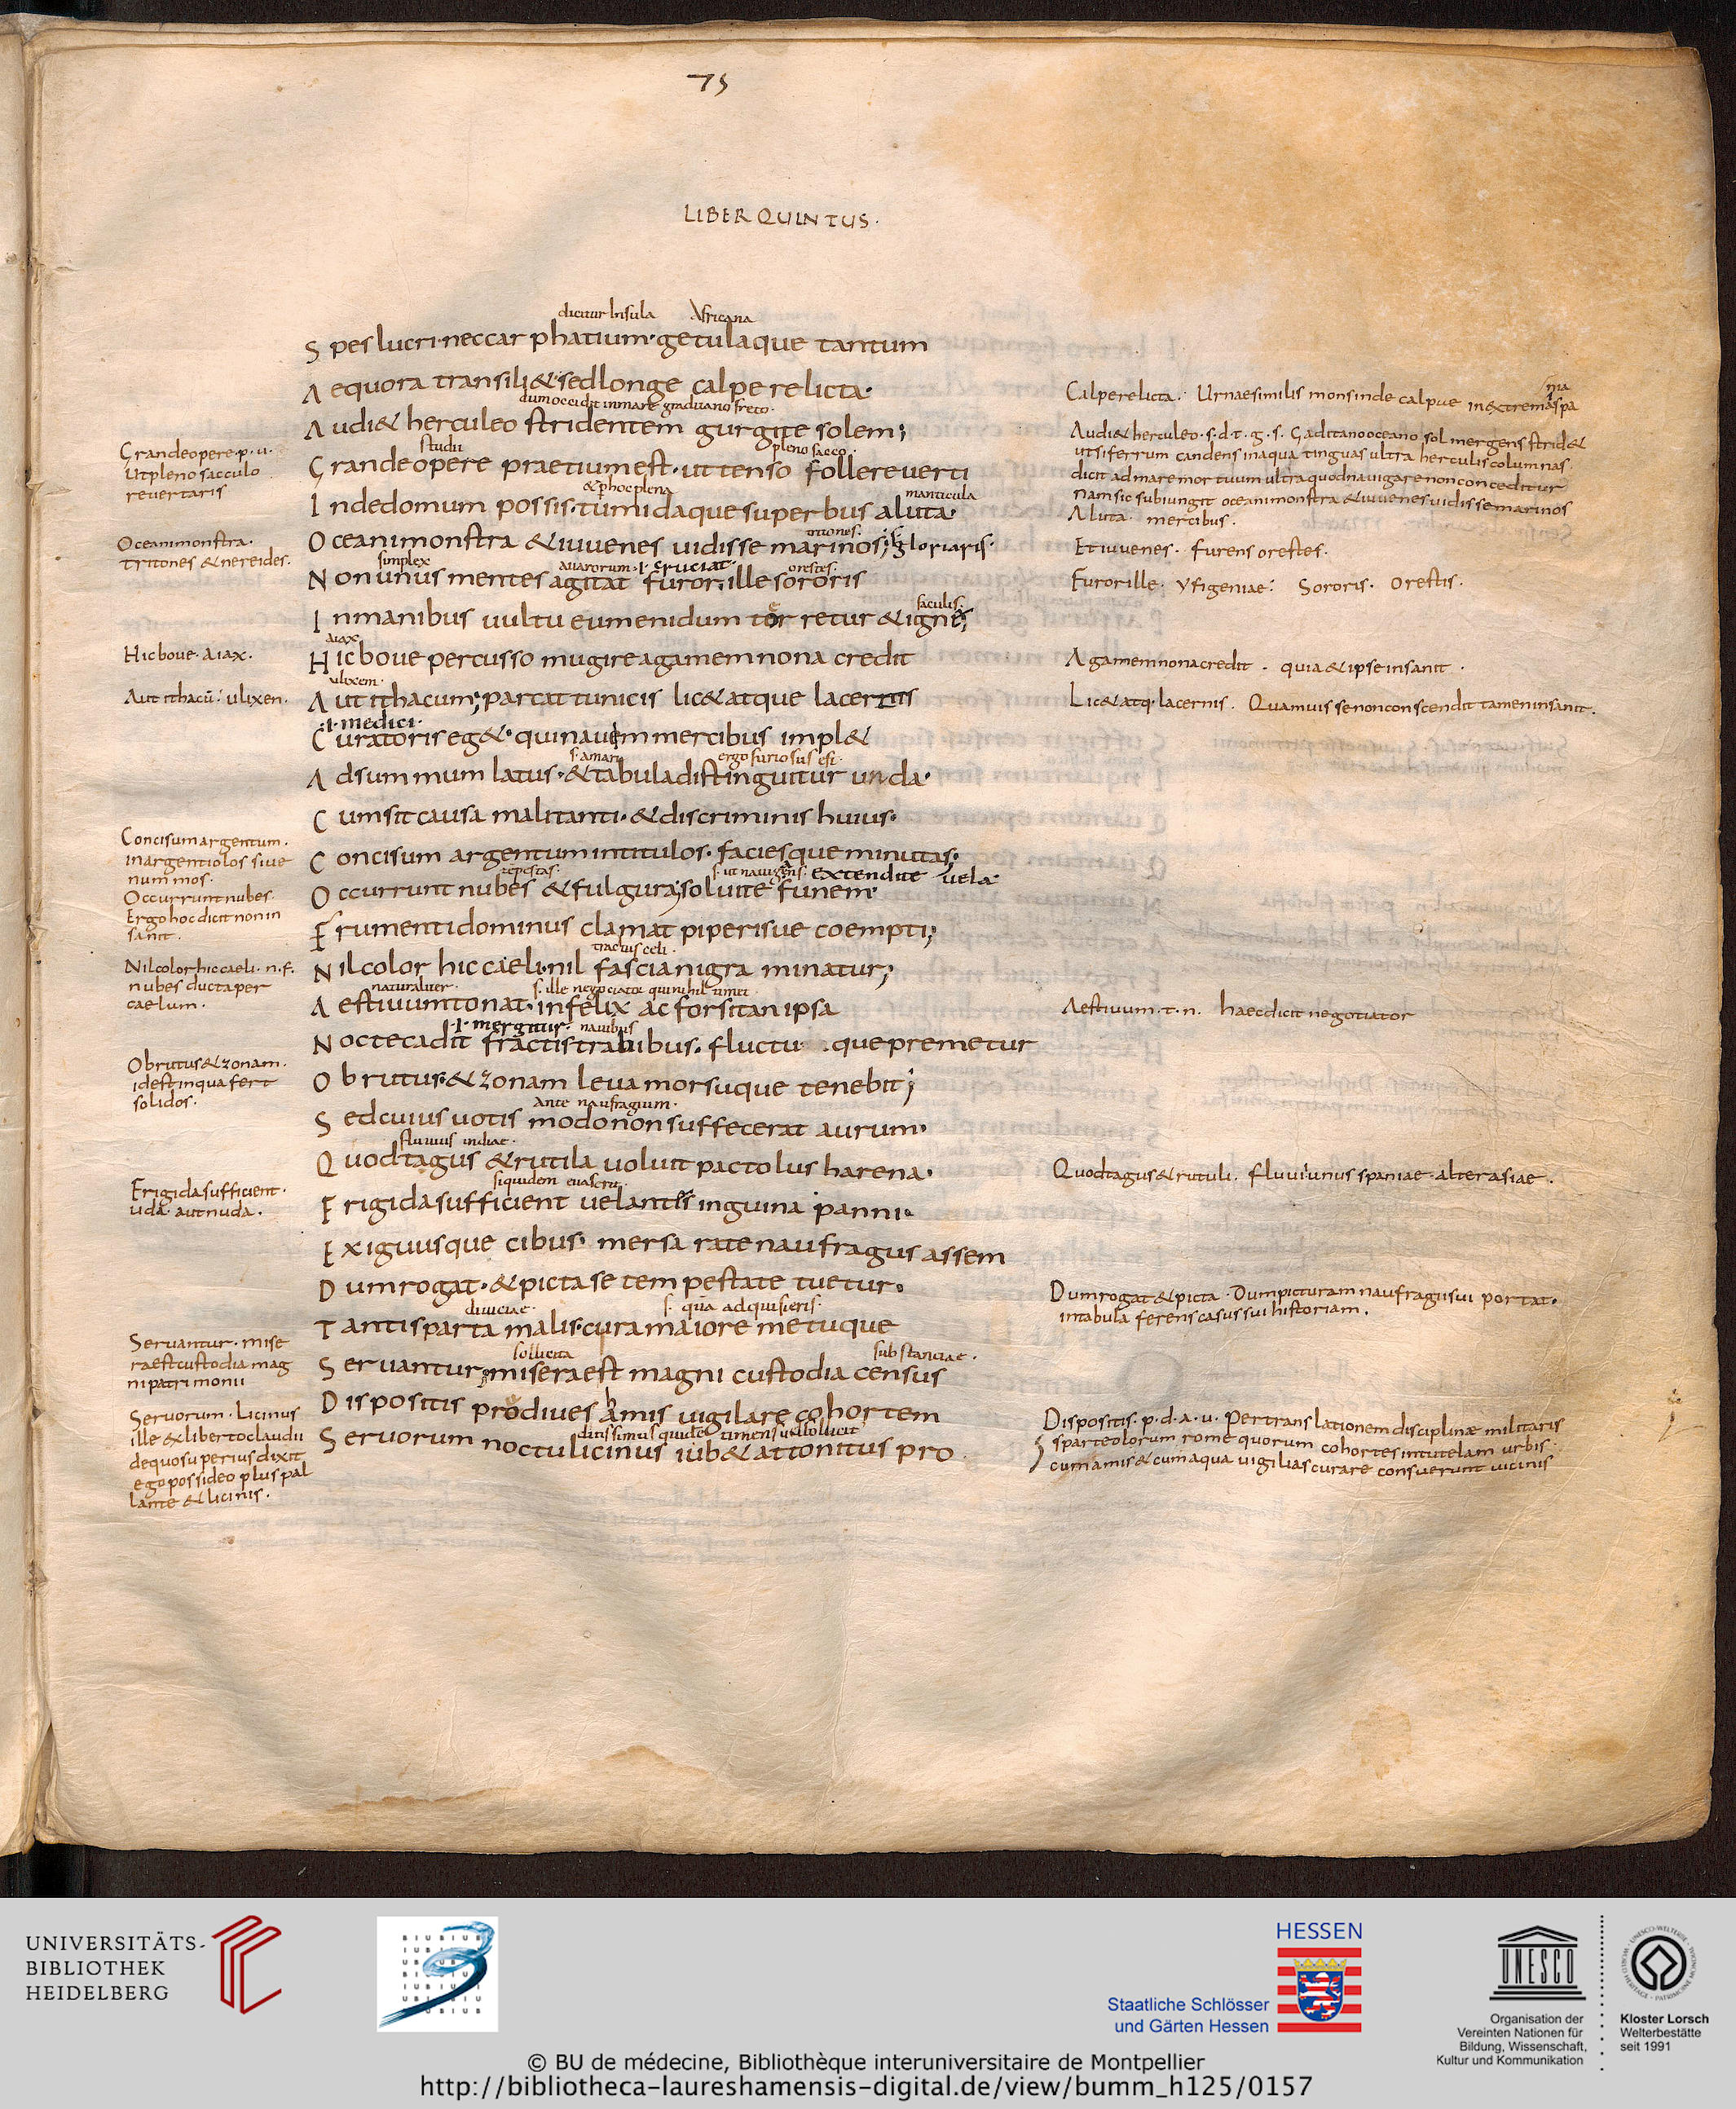 75
LIBER QUINTUS.
dicitur Insula Africana
Spes lucri· nec carphatium· getulaque tantum
Aequora transili& sed longe calpe relicta·
dum occidit in mare graditano freto·
Audi& herculeo stridentem gurgite solem;
studii pleno sacco·
Grande opere praetium est· ut tenso folle reverti
& p hoc plena manticula
Inde domum possis· tumidaque superbus aluta·
tritones·
Oceani monstra & iuuenes uidisse marinos; gloriaris·
simplex auarorum· ł cruciat· orestes·
Non unus mentes agitat furor; ille sororis
faculis·
In manibus uultu eumenidum torretur & igne;
Aiax
Hic boue percusso mugire agamemnona credit
ulixem·
Aut ithacum; parcat tunicis lic& atque lacernis
·i· medici·
Curatoris eg&· qui nauem mercibus impl&
s· amari ergo furiosus est·
Ad summum latus· & tabula distinguitur unda·
Cum sit causa mali tanti· & discriminis huius·
Concisum argentum in titulos· faciesque minutas·
tempestas· s· ut nauigens· extendite uela
Occurrunt nubes & fulgura; soluite funem·
Frumenti dominus clamat piperisue coempti;
tractus celi·
Nil color hic caeli· nil fascia nigra minatur;
naturaliter· s· ille negociator qui nihil timet
Aestiuum tonat· infelix ac forsitan ipsa
·i· mergitur· nauibus
Nocte cadit fractis trabibus· fluctu que premetur
Obrutus· & zonam leua morsuque tenebit;
Ante naufragium·
Sed cuius uotis modo non suffecerat aurum·
fluuius indiae·
Quod tagus & rutila uoluit pactolus harena·
siquidem euaserit·
Frigida sufficient uelantes inguina panni·
Exiguusque cibus· mersa rate naufragus assem
Dum rogat· & picta se tempestate tuetur·
diuiciae· s· qua adquisieris·
Tantis parta malis· cura maiore metuque
sollicita substanciae·
Seruantur; misera est magni custodia census
Dispositis predives hamis uigilare cohortem
ditissimus quidem timens uel sollicit
Seruorum noctu licinus iub& attonitus pro
Grande opere· p· u·
Ut pleno sacculo
reuertaris
Oceani monstra·
tritones & nereides·
Hic boue· Aiax·
Aut ithacū· ulixen·
Concisum argentum·
in argentiolos siue
nummos·
Occurrunt nubes·
Ergo hoc dicit non in
sanit·
Nil color hic caeli· n· f·
nubes ducta per
caelum·
Obrutus & zonam·
id est in qua fert
solidos·
Frigida sufficient·
uda· aut nuda·
Seruantur· mise
ra est custodia mag
ni patrimonii
Seruorum· Licinus
ille & liberto claudii
de quo superius dixit
ego possideo plus pal
lante & licinis·
Calpe relicta· Urnae similis mons inde calpue in extrema spania
Audi& herculeo· s· d· t· g· s· Gaditano oceano sol mergens strid&
ut si ferrum candens in aqua tinguas ultra herculis columnas
dicit ad mare mortuum ultra quod nauigare non conceditur
Nam sic subiungit oceani monstra & iuuenes uidisse marinos
Aluta· mercibus·
Et iuuenes· furens orestes·
Furor ille· yfigeniae· Sororis· orestis·
Agamemnona credit· quia & ipse insanit·
Lic& atq· lacernis· Quamuis se non conscendit tamen insanit·
Aestiuum· t· n· haec dicit negotiator
Quod tagus & rutuli· fluuii unus spaniae· alter asiae·
Dum rogat & picta· Dum picturam naufragii sui portat·
in tabula ferens casus sui historiam·
Dispositis· p· d· a· u· Per translationem disciplinæ militaris
sparteolorum rome quorum cohortes in tutelam urbis
cum amis & cum aqua uigilias curare consuerunt uicinis
UNIVERSITÄTS-
BIBLIOTHEK
HEIDELBERG
HESSEN
Staatliche Schlösser
und Gärten Hessen
UNESCO
Organisation der
Vereinten Nationen für
Bildung, Wissenschaft,
Kultur und Kommunikation
Kloster Lorsch
Welterbestätte
seit 1991
© BU de médecine, Bibliothèque interuniversitaire de Montpellier
http://bibliotheca-laureshamensis-digital.de/view/bumm_h125/0157